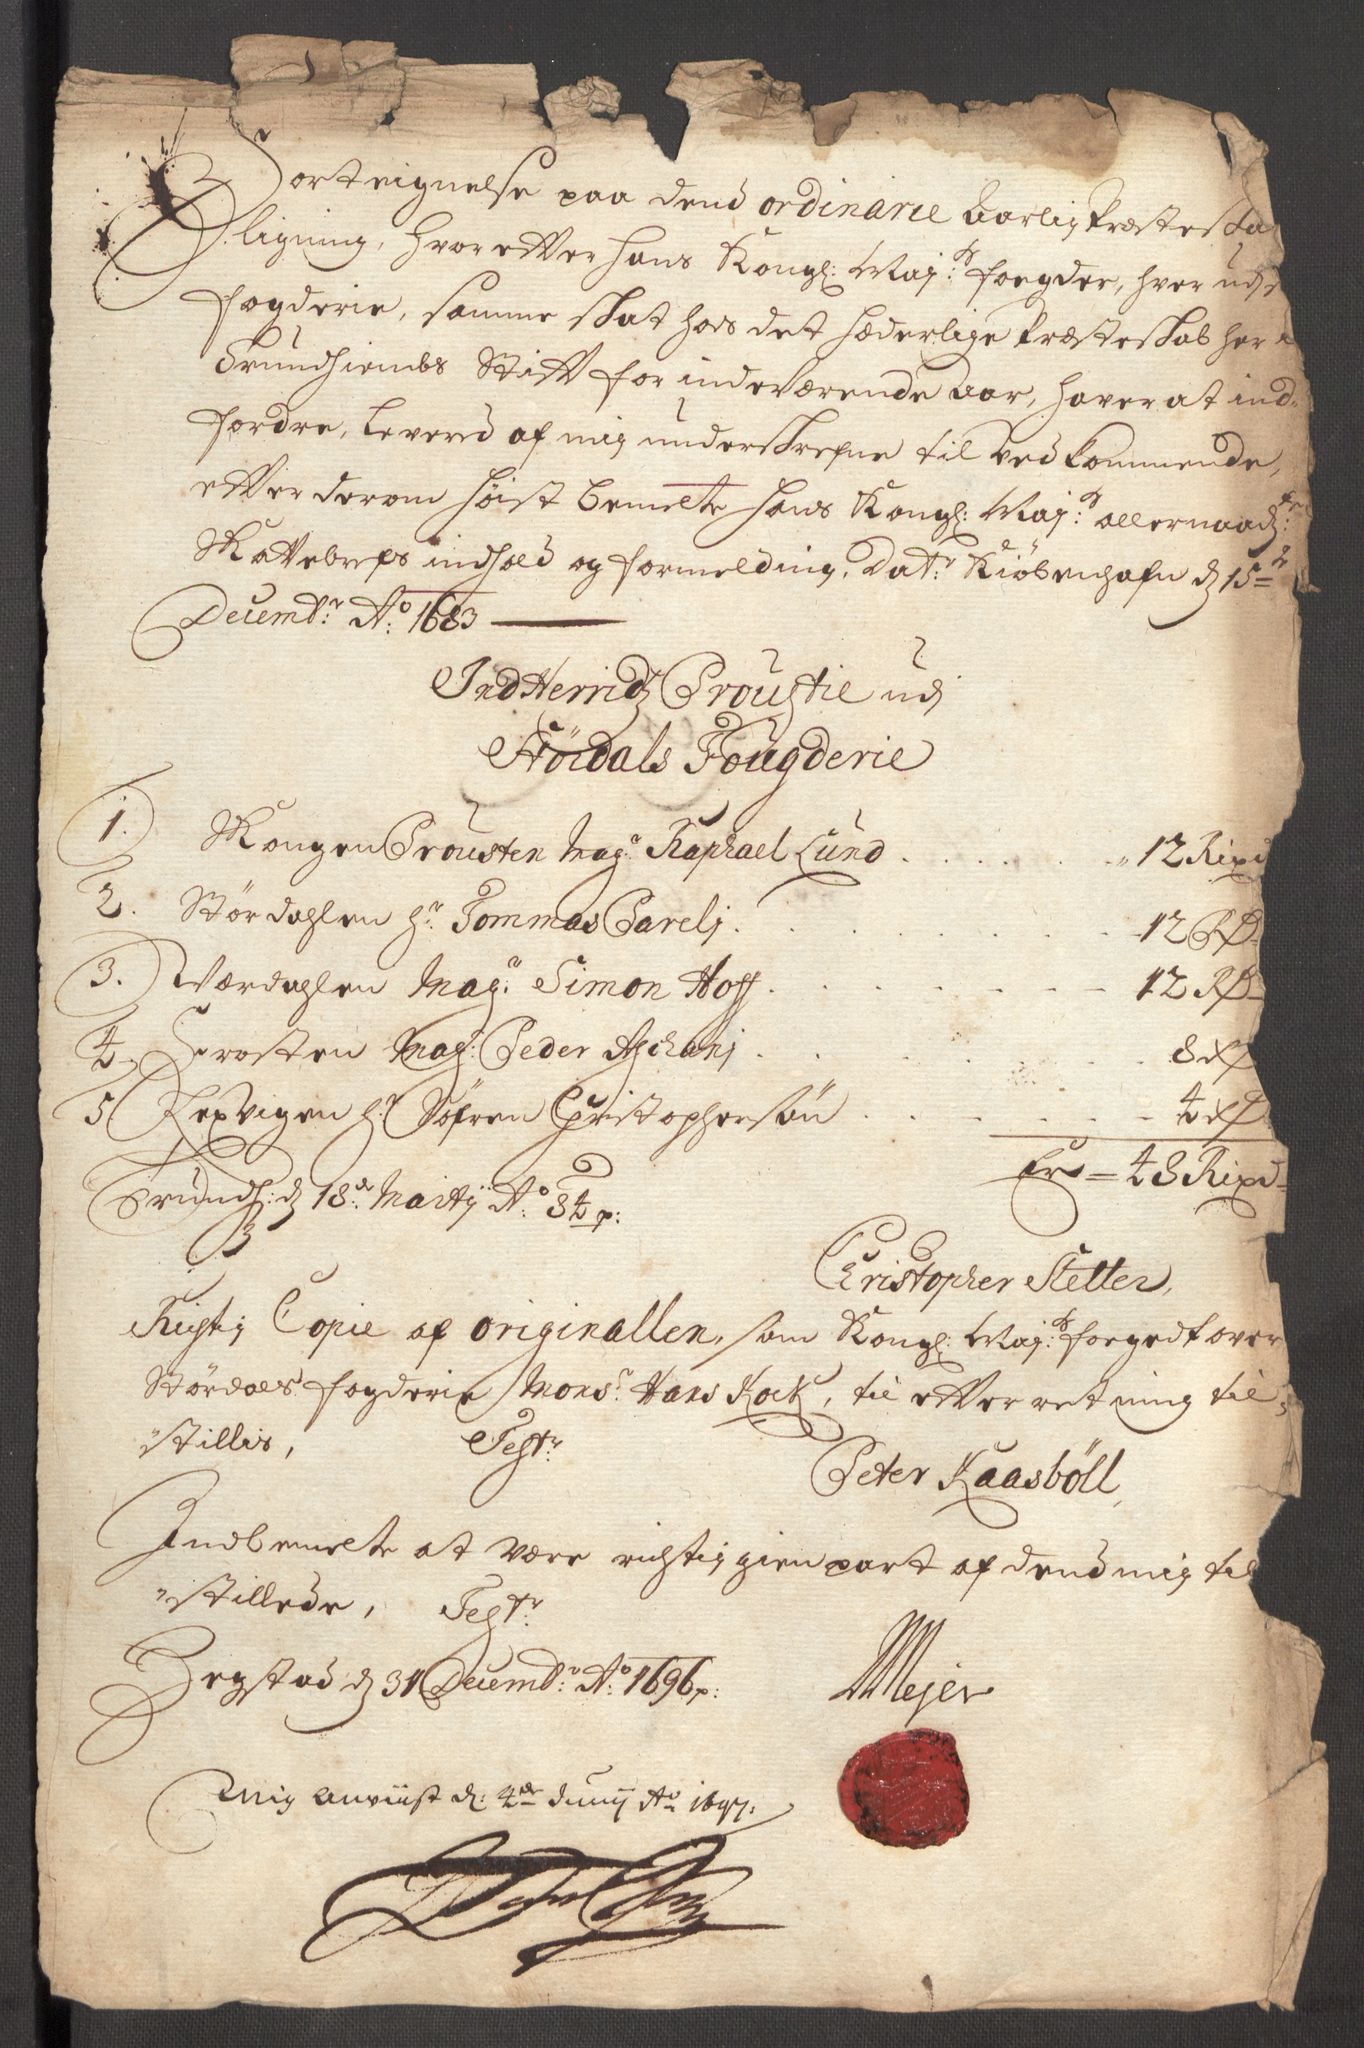 Forteignelse paa dend ordinarie Aarlig Præsteska
ligning, hvor efter hans Kongl: Maj:ts foegder, hver udj
fogderie, samme skat hos det hæderlige Præsteskab her
Trundhiembs Stift for indeværende Aar, haver at ind-
fordre, leverd af mig underskrefne til ved kommende,
efter derom høist bemelte hans Kongl: Maj:ts allernaad:ste
Skattebrefs indhold og formelding, Dat: Kiöbenhafn d 15
Decembr: Ao: 1683
Ind Herridz Proustie udj
Stördals Fougderie
1. Skongen Prousten Mag:r Raphael Lund . . . 12 Rixd
2. Stördahlen Hr: Tommas Parelj . . . 12 Rd
3. Værdahlen Mag:r Simon Hoff . . . 12 Rd
4. Frosten Mag:r Peder Aschanj . . . 8 Rd
5 Lexvigen Hr: Söfren Christophersön . . . 4 Rd
Er = 48 Rixd
Trundh: d 18de Martij Ao: 84 p:
Christopher Stetter,
Rigtig Copie af originallen, som Kongl: Maj:ts foegedt over
Stördals fogderie Mons:r Hans Kock, til efterretning til
stillis, Test:r
Peter Kaasböll
Indbemelte at være richtig gienpart af dend mig til
stillede, Test:r
d 31 Decembr: Ao: 1696 p:
Mejer
Mig Anviist d: 4de Junij Ao 1697: